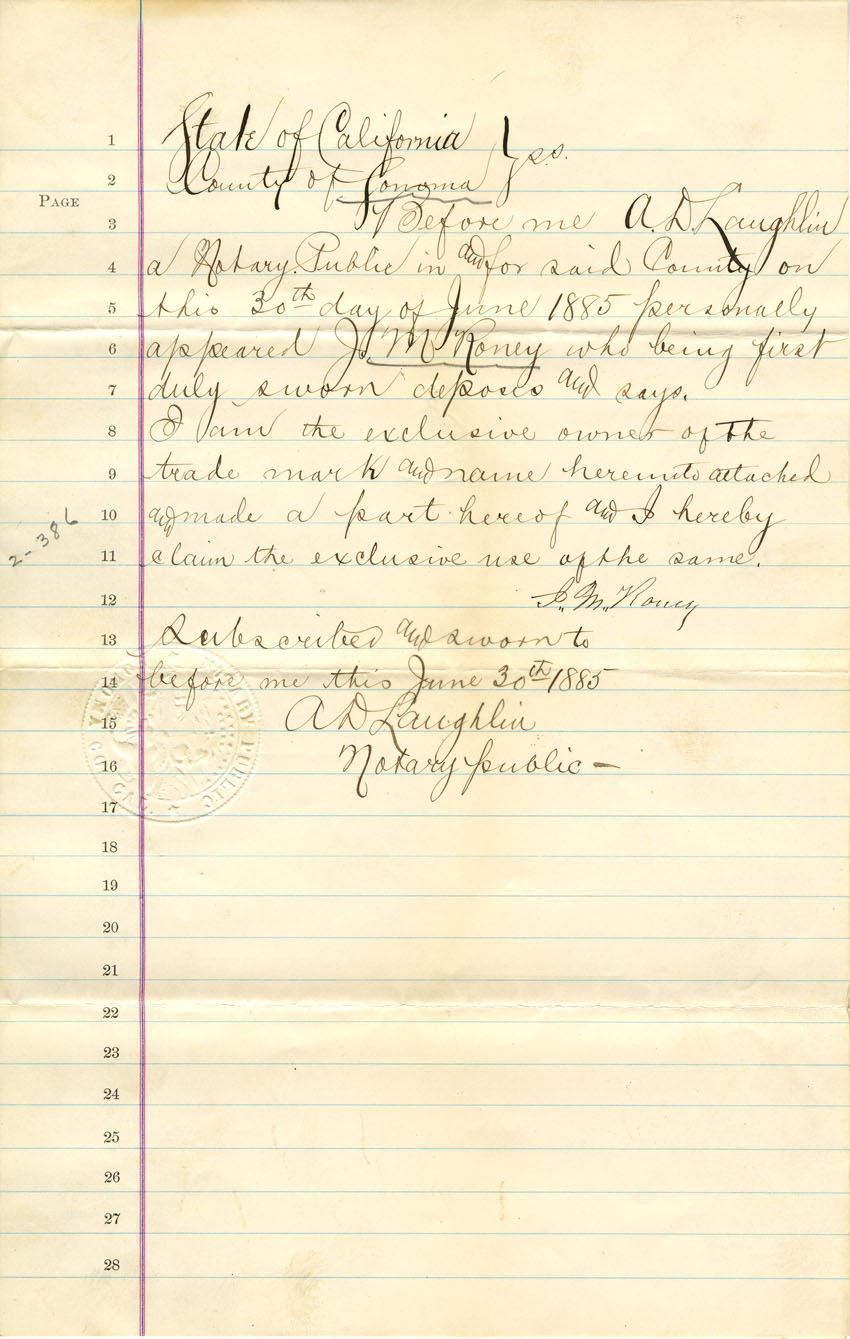 1 State of California }
2 County of Sonoma } ss.
PAGE
3 Before me A. D. Laughlin
4 a Notary Public in and for said County on
5 this 30th day of June 1885 personally
6 appeared J. M. Roney who being first
7 duly sworn deposes and says.
8 I am the exclusive owner of the
9 trade mark and name hereunto attached
10 and made a part hereof and I hereby
2-386
11 claim the exclusive use of the same.
12 J. M. Roney
13 Subscribed and sworn to
14 before me this June 30th 1885
15 A D Laughlin
16 Notary public -
17
18
19
20
21
22
23
24
25
26
27
28
NOTARY PUBLIC